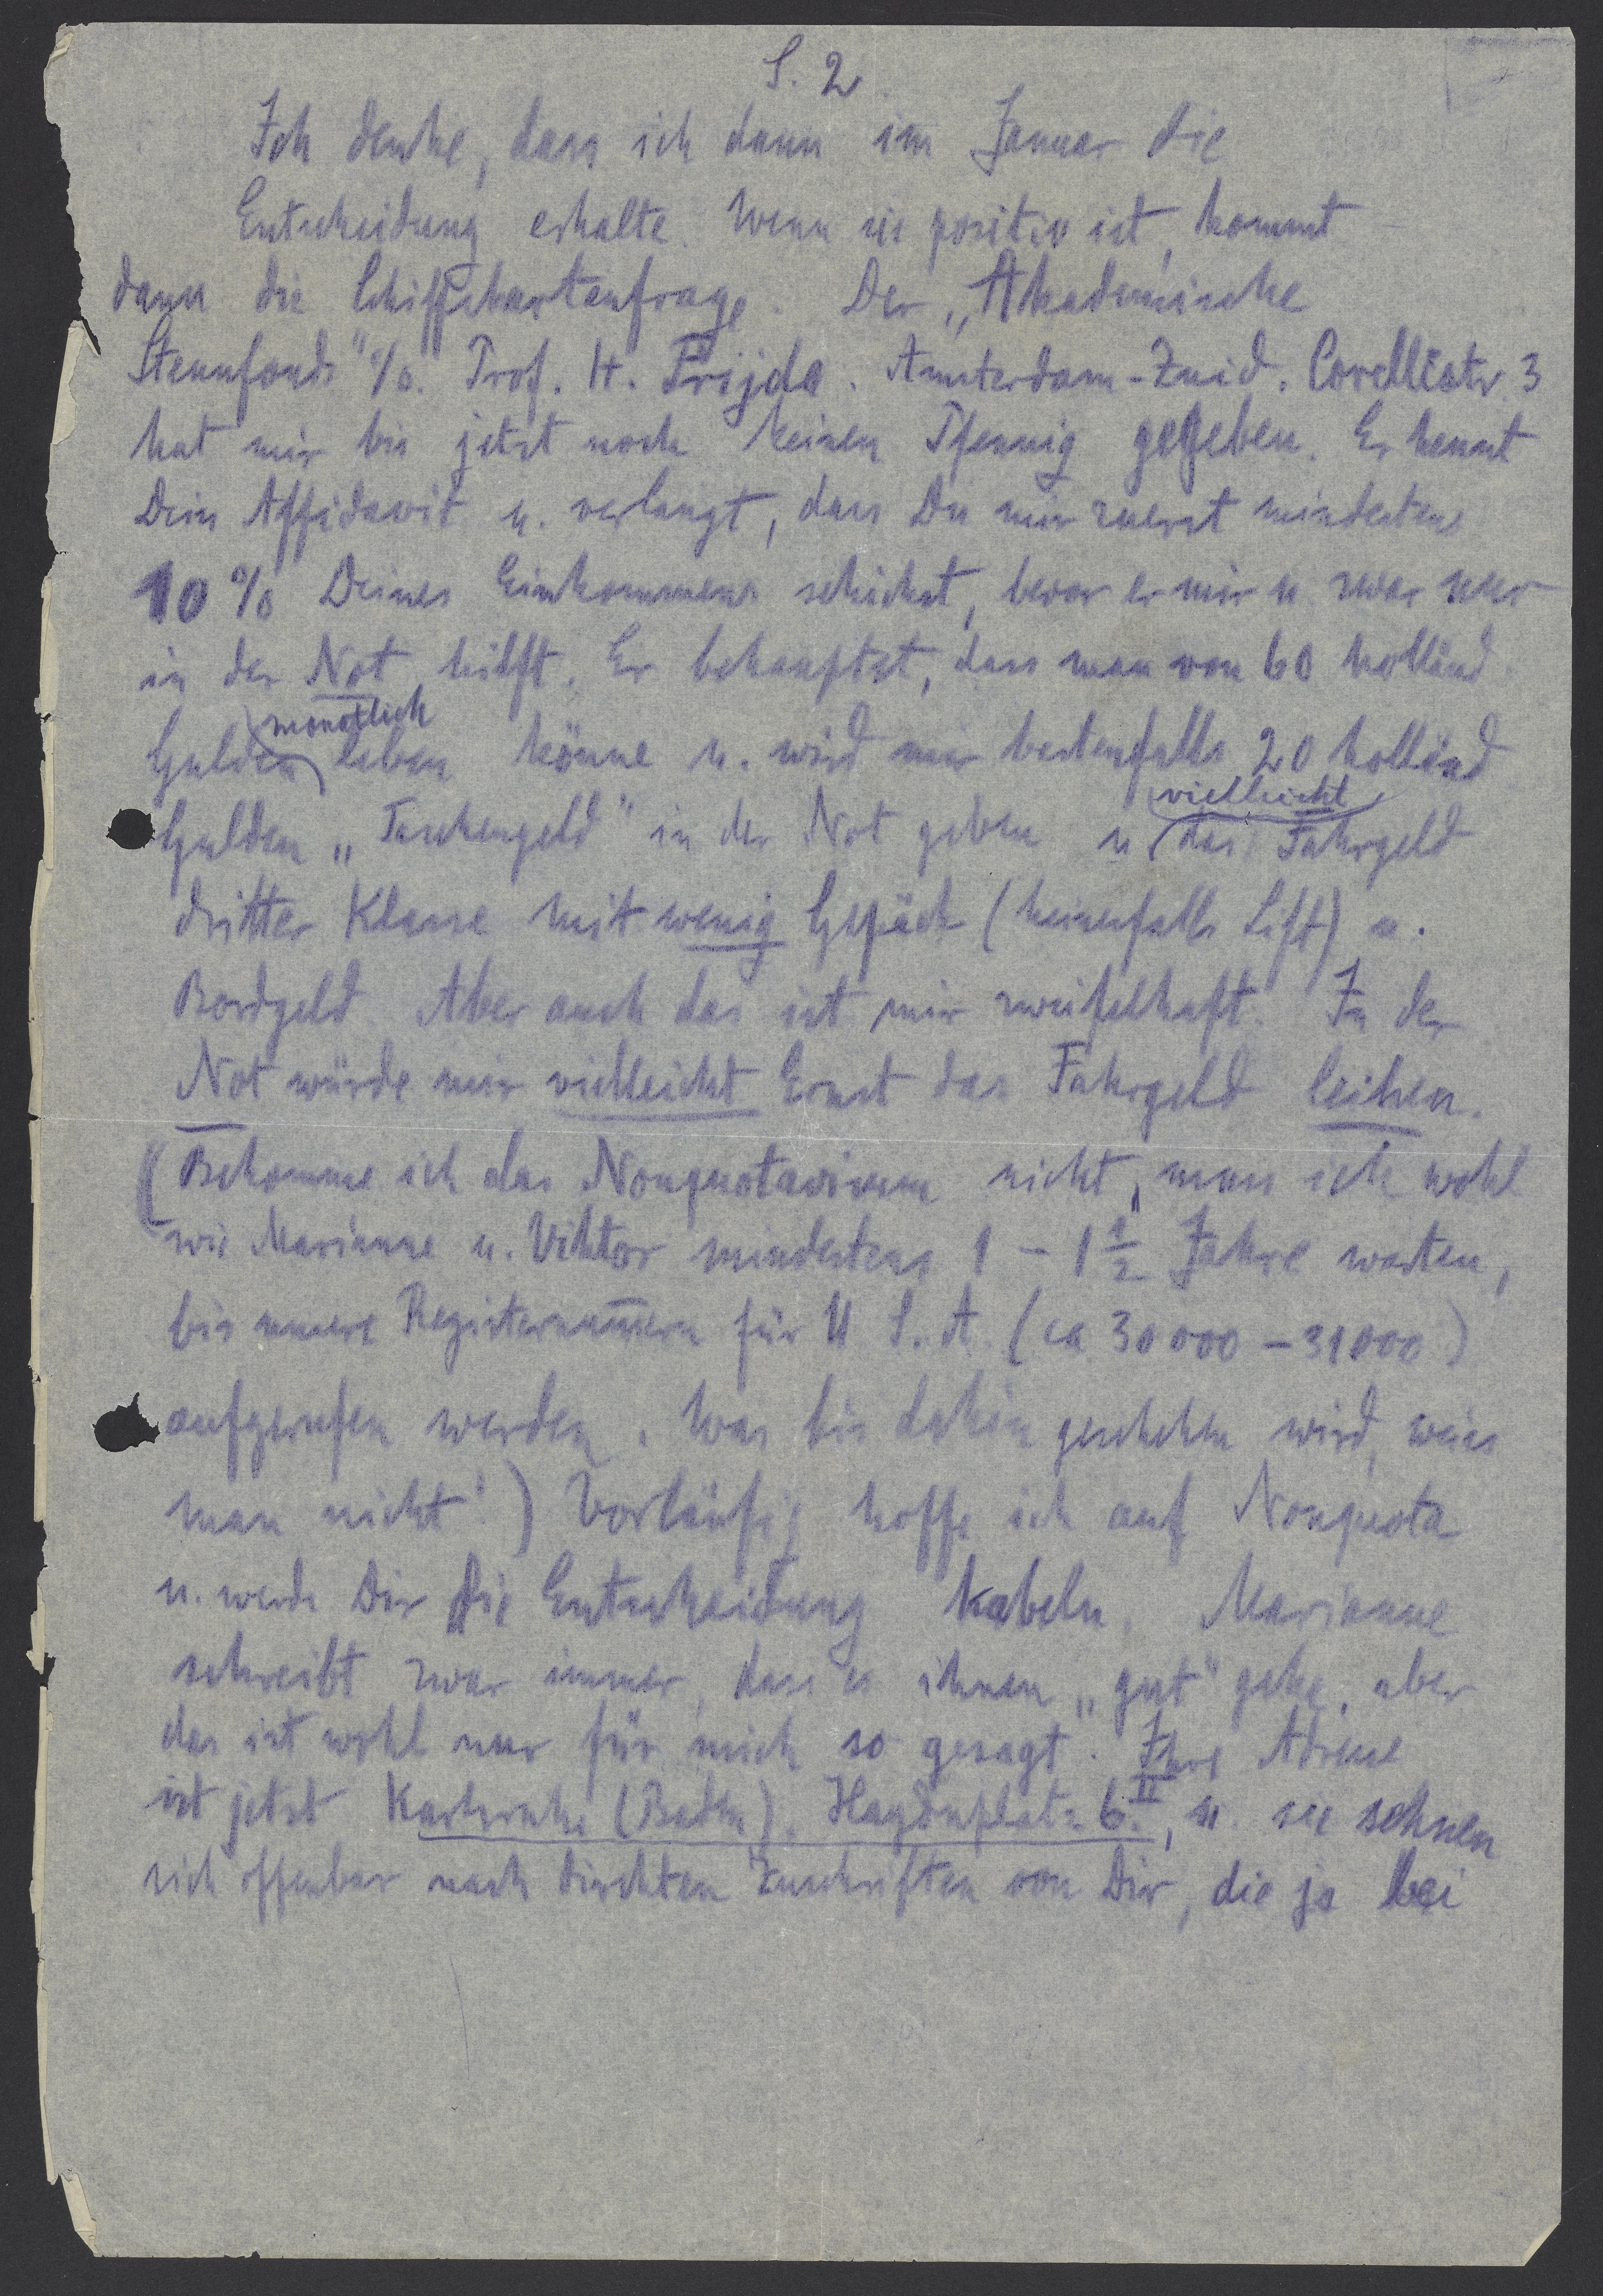 S. 2.
Ich denke, dass ich dann im Januar die
Entscheidung erhalte. Wenn sie positiv ist, kommt
dann die Schiffskartenfrage. Der „Akademische
Steunfonds" c/o. Prof. H. Frijda. Amsterdam-Zuid. Corellistr. 3
hat mir bis jetzt noch keinen Pfennig gegeben. Er kennt
Dein Affidavit u. verlangt, dass Du mir zuerst mindestens
10 % Deines Einkommens schickst, bevor er mir u. zwar nur
in der Not hilft. Er behauptet, dass man von 60 holländ.
Gulden monatlich leben könne u. wird mir bestenfalls 20 holländ
Gulden „Taschengeld" in der Not geben u. vielleicht das Fahrgeld
dritter Klasse mit wenig Gepäck (keinenfalls Lift) u.
Bordgeld. Aber auch das ist mir zweifelhaft. In der
Not würde mir vielleicht Ernst das Fahrgeld leihen.
(Bekomme ich das Nonquotavisum nicht, muss ich wohl
wie Marianne u. Viktor mindestens 1 – 1 1/2 Jahre warten,
bis unsere Registernum̅ern für U. S. A. (ca 30 000 – 31 000)
aufgerufen werden. Was bis dahin geschehen wird, weiss
man nicht!) Vorläufig hoffe ich auf Nonquota
u. werde Dir die Entscheidung kabeln. Marianne
schreibt zwar immer, dass es ihnen „gut" gehe, aber
das ist wohl nur für mich so gesagt. Ihre Adresse
ist jetzt Karlsruhe (Baden). Haydnplatz 6. II, u. sie sehnen
sich offenbar nach direkten Zuschriften von Dir, die ja bei